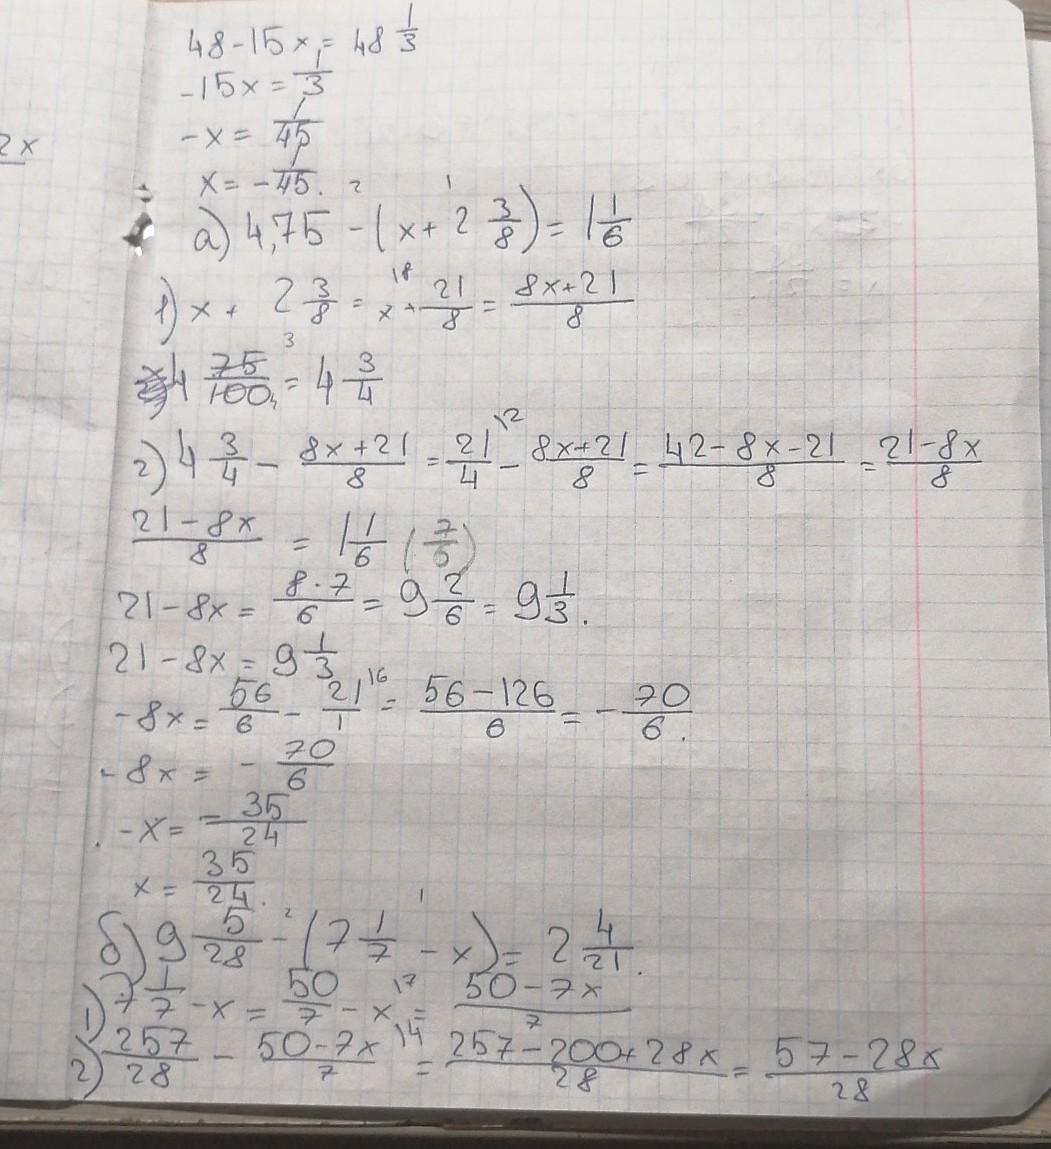 48-15x = 48 1/3
-15x = 1/3
2x
-x = 1/45
x = -1/45.
а) 4,75 - (x + 2 3/8) = 1 1/6
1) x + 2 3/8 = x + 21/8 = (8x+21)/8
4 75/100 = 4 3/4
2) 4 3/4 - (8x+21)/8 = 21/4 - (8x+21)/8 = (42-8x-21)/8 = (21-8x)/8
(21-8x)/8 = 1 1/6 (7/5)
21-8x = (8·7)/6 = 9 2/6 = 9 1/3.
21-8x = 9 1/3
-8x = 56/6 - 21/1 = (56-126)/6 = -70/6.
-8x = -70/6
-x = -35/24
x = 35/24.
б) 9 5/28 - (7 1/7 - x) = 2 4/21.
1) 7 1/7 - x = 50/7 - x = (50-7x)/7
2) 257/28 - (50-7x)/7 = (257-200+28x)/28 = (57-28x)/28